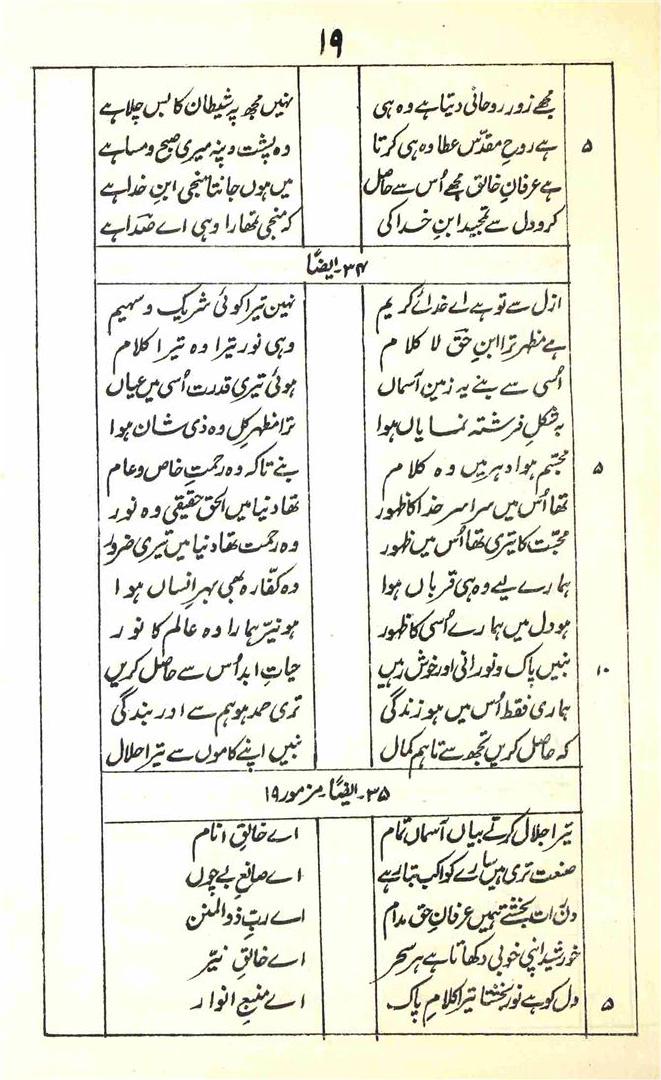 ۱۹
مجھے زور روحانی دیتا ہے وہ ہی نہیں مجھ پہ شیطان کا بس چلا ہے
۵ ہے روحِ مقدّس عطا وہ ہی کرتا وہ پشت و پنہ میری صبح و مسا ہے
ہے عرفانِ خالق مجھے اُس سے حاصل میں ہوں جانتا منجی ابنِ خدا ہے
کرو دل سے تمجید ابنِ خدا کی کہ منجی تمھارا وہی اے صفدا ہے
۳۴۔ ایضًا
ازل سے تو ہے اے خدائے کریم نہیں تیرا کوئی شریک و سہیم
ہے مظہر ترا ابنِ حق لا کلام وہی نور تیرا وہ تیرا کلام
اُسی سے بنے یہ زمین آسماں ہوئی تیری قدرت اُسی میں عیاں
بہ شکلِ فرشتہ نمایاں ہوا ترا مظہرِ کل وہ ذی شان ہوا
۵ مجسّم ہوا دہر میں وہ کلام بنے تاکہ وہ رحمتِ خاص و عام
تھا اُس میں سراسر خدا کا ظہور تھا دنیا میں الحق حقیقی وہ نور
محبّت کا تیری تھا اُس میں ظہور وہ رحمت تھا دنیا میں تیری ضرور
ہمارے لیے وہ ہی قرباں ہوا وہ کفّارہ بھی بہرِ انساں ہوا
ہو دل میں ہمارے اُسی کا ظہور ہو نیّر ہمارا وہ عالم کا نور
۱۰ بنیں پاک و نورانی اور خوش رہیں حیاتِ ابد اُس سے حاصل کریں
ہماری فقط اُس میں ہو زندگی تری حمد ہو ہم سے اور بندگی
کہ حاصل کریں تجھ سے تا ہم کمال بنیں اپنے کاموں سے تیرا جلال
۳۵۔ ایضًا۔ مزمور ۱۹
تیرا جلال کرتے بیاں آسماں تمام اے خالقِ انام
صنعت تری ہیں سارے کواکب بتا رہے اے صانعِ بے چوں
دن رات بخشتے ہیں عرفانِ حق مدام اے ربِّ ذوالمنن
خورشید اپنی خوبی دکھاتا ہے ہر سحر اے خالقِ نیّر
۵ دل کو ہے نور بخشتا تیرا کلامِ پاک اے منبعِ انوار